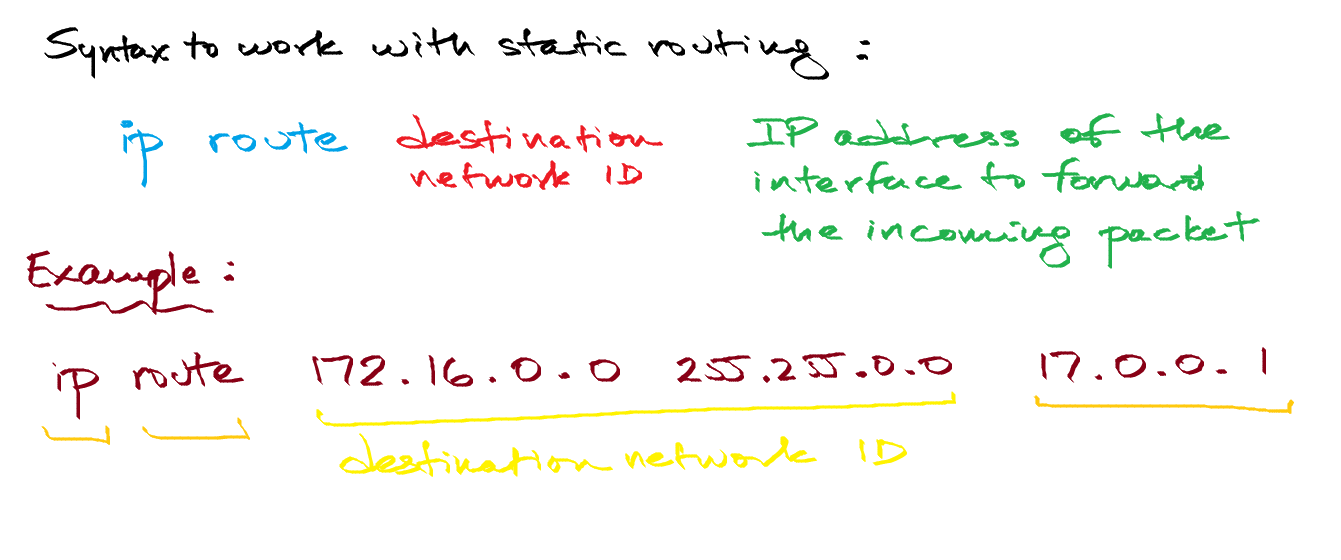 Syntax to work with static routing :
ip route destination network ID IP address of the interface to forward the incoming packet
Example :
ip route 172.16.0.0 255.255.0.0 17.0.0.1
destination network ID